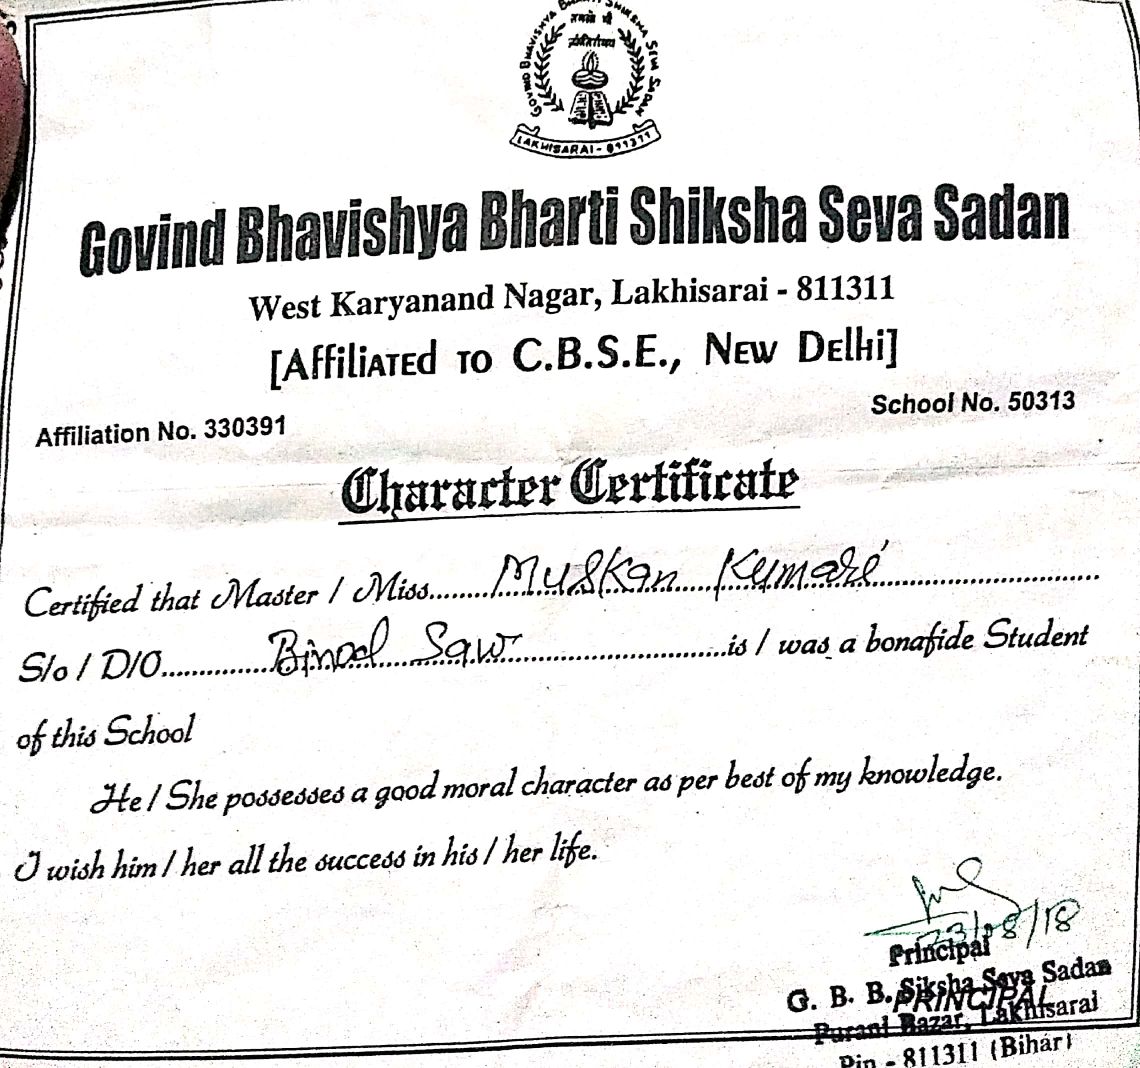 GOVIND BHAVISHYA BHARTI SHIKSHA SEVA SADAN
LAKHISARAI - 811311
Govind Bhavishya Bharti Shiksha Seva Sadan
West Karyanand Nagar, Lakhisarai - 811311
[Affiliated to C.B.S.E., New Delhi]
Affiliation No. 330391 School No. 50313
Character Certificate
Certified that Master / Miss........Muskan Kumari........
S/o / D/O........Binod Saw........is / was a bonafide Student
of this School
He / She possesses a good moral character as per best of my knowledge.
I wish him / her all the success in his / her life.
23/08/18
Principal
G. B. B. Siksha Seva Sadan
PRINCIPAL
Purani Bazar, Lakhisarai
Pin - 811311 (Bihar)